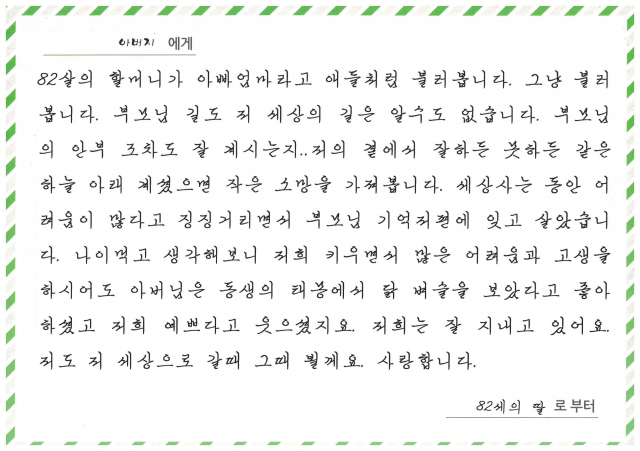 아버지 에게
82살의 할머니가 아빠엄마라고 애들처럼 불러봅니다. 그냥 불러
봅니다. 부모님 길도 저 세상의 길은 알수도 없습니다. 부모님
의 안부 조차도 잘 계시는지..저의 곁에서 잘하든 못하든 같은
하늘 아래 계셨으면 작은 소망을 가져봅니다. 세상사는 동안 어
려움이 많다고 징징거리면서 부모님 기억저편에 잊고 살았습니
다. 나이먹고 생각해보니 저희 키우면서 많은 어려움과 고생을
하시어도 아버님은 동생의 태몽에서 닭 벼슬을 보았다고 좋아
하셨고 저희 예쁘다고 웃으셨지요. 저희는 잘 지내고 있어요.
저도 저 세상으로 갈때 그때 뵐께요. 사랑합니다.
82세의 딸 로부터